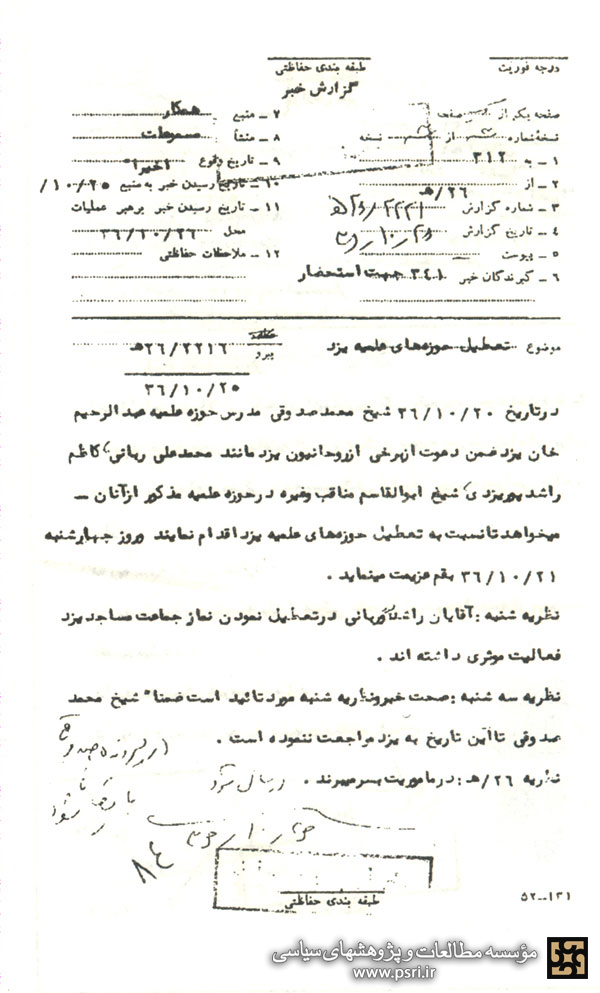 درجه فوریت
طبقه بندی حفاظتی
گزارش خبر
صفحه یکم از یکصفحه
نسخه شماره از نسخه
۱ ـ به ۳۱۲
۲ ـ از ۲۶/هـ
۳ ـ شماره گزارش
۴ ـ تاریخ گزارش
۵ ـ پیوست
۶ ـ گیرندگان خبر ۳۴۱ جهت استحضار
۷ ـ منبع همکار
۸ ـ منشأ مسموعات
۹ ـ تاریخ وقوع اخیرا"
۱۰ ـ تاریخ رسیدن خبر به منبع ۱۰/۲۵/
۱۱ ـ تاریخ رسیدن خبر برهبر عملیات
محل ۳۶/۱۰/۲۶
۱۲ ـ ملاحظات حفاظتی
موضوع تعطیل حوزه‌های علمیه یزد
پیرو ۲۶/۲۲۱۶هـ
۳۶/۱۰/۲۵
درتاریخ ۳۶/۱۰/۲۰ شیخ محمدصدوقی مدرس حوزه علمیه عبدالرحیم
خان یزد ضمن دعوت ازبرخی ازروحانیون یزد مانند محمدعلی ربانی، کاظم
راشدپوریزدی شیخ ابوالقاسم مناقب وغیره درحوزه علمیه مذکور ازآنان ـ
میخواهد تانسبت به تعطیل حوزه‌های علمیه یزد اقدام نمایند وروز چهارشنبه
۳۶/۱۰/۲۱ بقم عزیمت مینماید .
نظریه شنبه : آقایان راشد وربانی درتعطیل نمودن نماز جماعت مساجد یزد
فعالیت موثری داشته اند .
نظریه سه شنبه : صحت خبرونظریه شنبه مورد تائید است ضمنا" شیخ محمد
صدوقی تااین تاریخ به یزد مراجعت ننموده است .
نظریه ۲۶/هـ : درماموریت بسرمیبرند .
ارسال شود
۸۴
طبقه بندی حفاظتی
۵۲ـ۱۳۱
مؤسسه مطالعات و پژوهشهای سیاسی
www.psri.ir